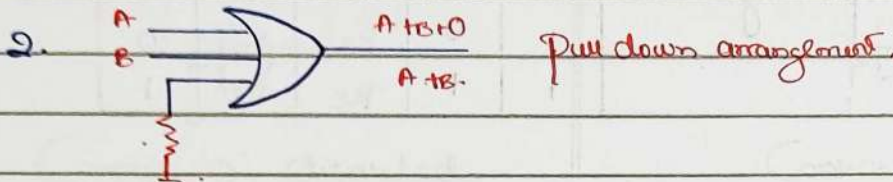 2.
A
B
A+B+0
A+B.
Pull down arrangement.